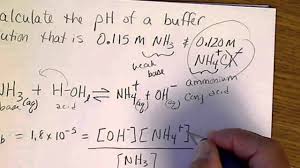 alculate the pH of a buffer
ution that is 0.115 M NH₃ & 0.120 M
NH₄⁺Cl⁻
weak
base
ammonium
conj acid
NH₃(aq) + H-OH(l) ⇌ NH₄⁺(aq) + OH⁻(aq)
base acid
b = 1.8 x 10⁻⁵ = [OH⁻][NH₄⁺]
[NH₃]